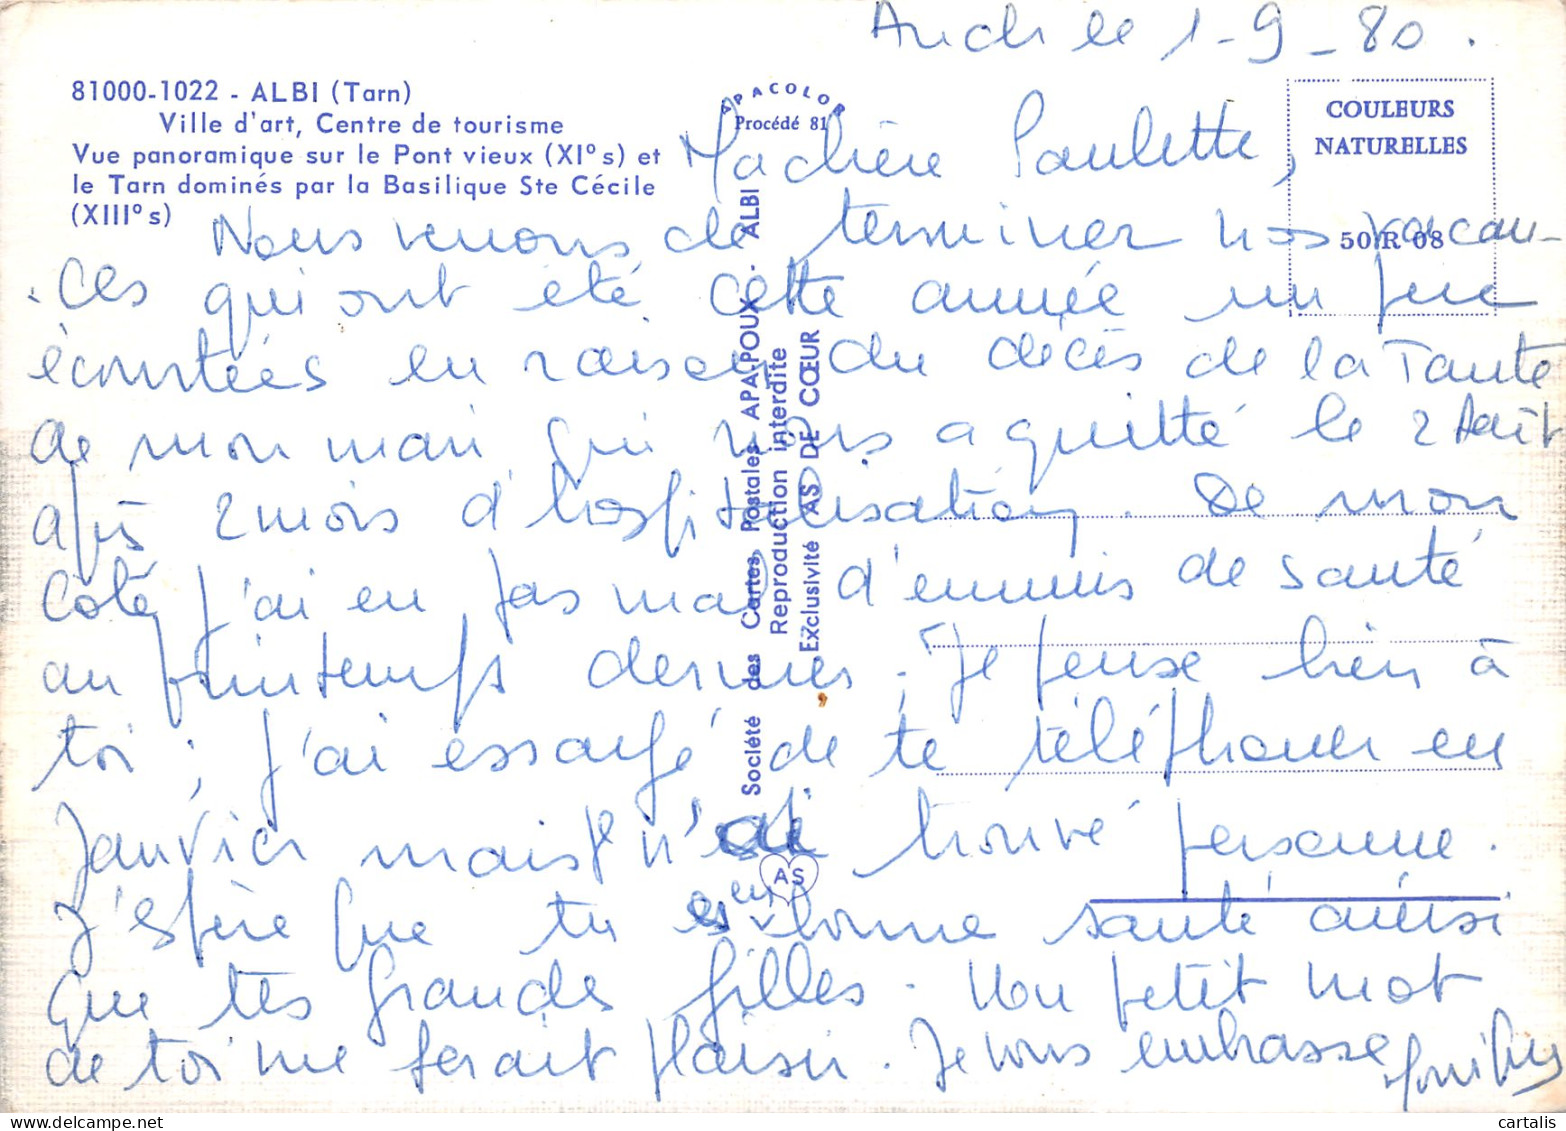 Auch le 1-9-80.
81000-1022 - ALBI (Tarn)
Ville d'art, Centre de tourisme
Vue panoramique sur le Pont vieux (XI° s) et
le Tarn dominés par la Basilique Ste Cécile
(XIII° s)
APACOLOR
Procédé 81
COULEURS
NATURELLES
50 IR 08
Société des Cartes Postales APA-POUX - ALBI
Reproduction interdite
Exclusivité AS DE CŒUR
AS
Ma chère Paulette,
Nous venons de terminer nos vacan-
ces qui ont été cette année un peu
écourtées en raison du décès de la Tante
de mon mari qui nous a quitté le 2 Août
après 2 mois d'hospitalisation. De mon
coté j'ai eu pas mal d'ennuis de santé
au printemps dernier ; Je pense bien à
toi ; j'ai essayé de te téléphoner en
Janvier mais je n'ai trouvé personne.
J'espère que tu es en bonne santé ainsi
que tes grandes filles. Un petit mot
de toi me ferait plaisir. Je vous embrasse
cartalis